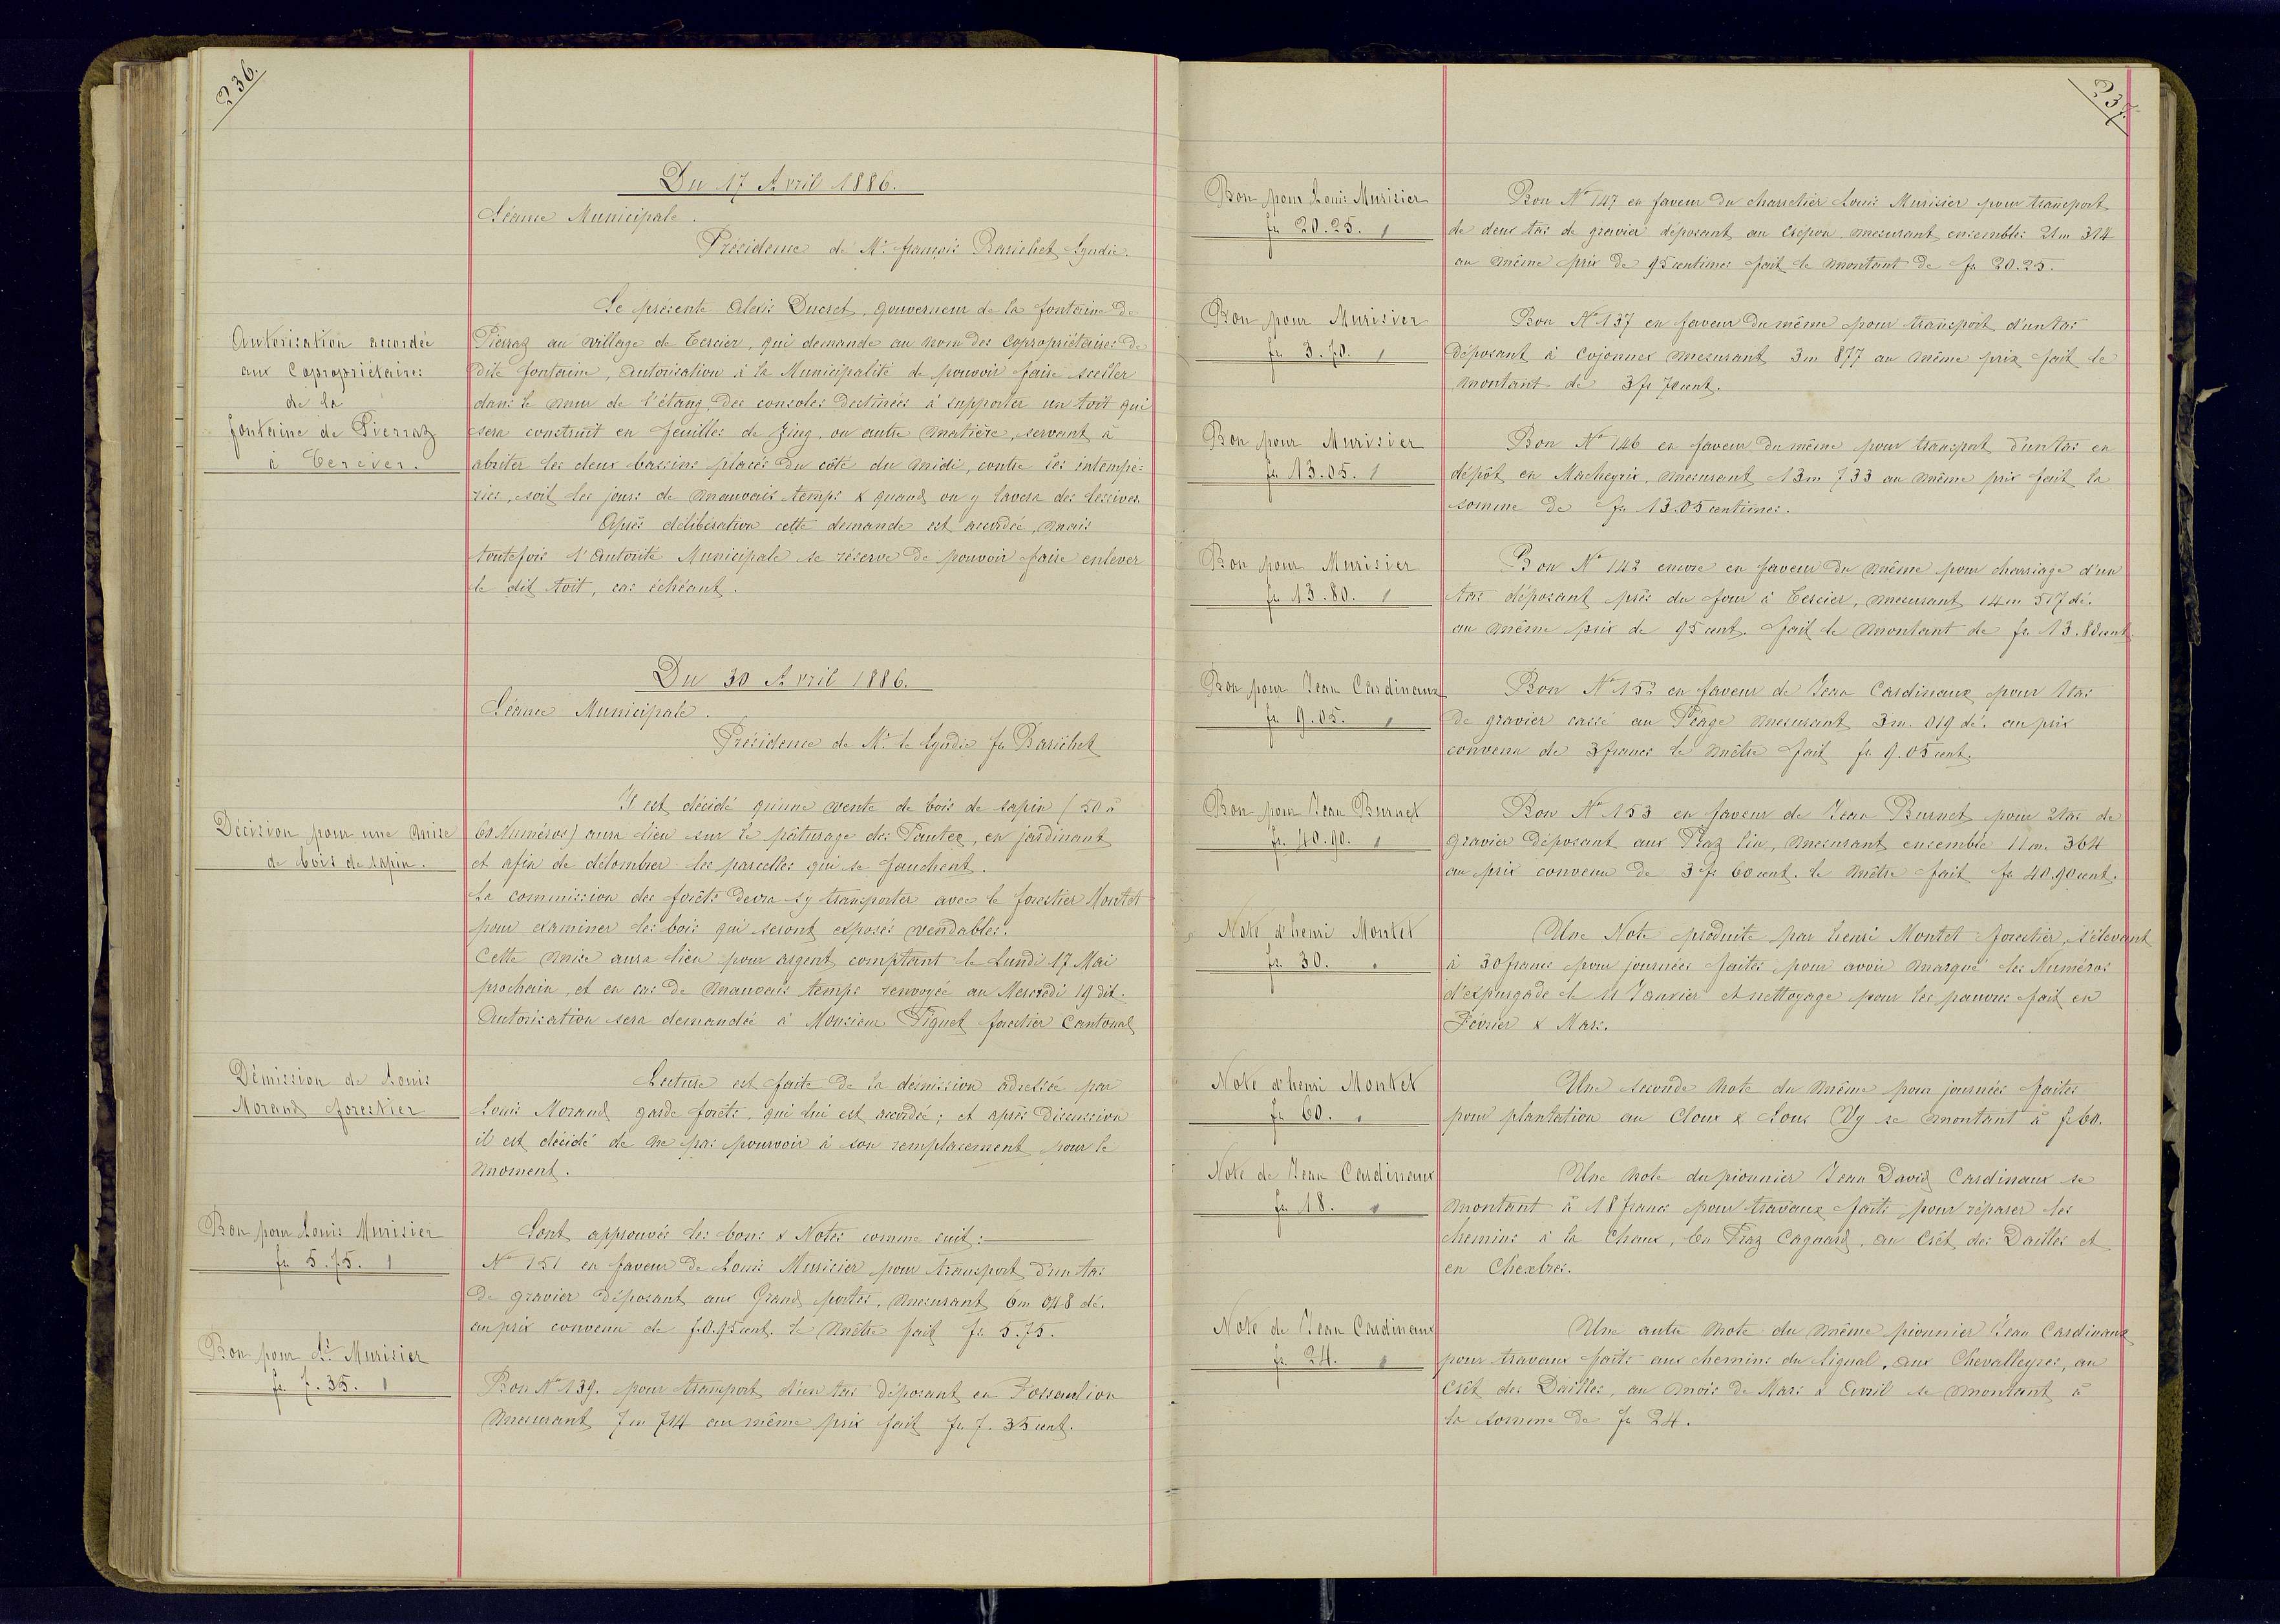 236.
Du 17 Avril 1886.
Séance Municipale.
Présidence de Mr. françois Barichet Syndic.
Autorisation accordée
aux Copropriétaires
de la
fontaine de Pierraz
à Tercier.
Se présente Alexis Ducret, gouverneur de la fontaine de
Pierraz au village de Tercier, qui demande au nom des Copropriétaires de
dite fontaine, autorisation à la Municipalité de pouvoir faire sceller
dans le mur de l'étang, des consoles destinées à supporter un toit qui
sera construit en feuilles de Zing, ou autre matière, servant à
abriter les deux bassins placés du côté du midi, contre les intempé:
ries, soit les jours de mauvais temps & quand on y lavera des lessives.
Après délibération cette demande est accordée, mais
toutefois l'Autorité Municipale se réserve de pouvoir faire enlever
le dit toit, cas échéant.
Du 30 Avril 1886.
Séance Municipale.
Présidence de Mr. le Syndic fs Barichet
Décision pour une mise
de bois de sapin.
Il est décidé qu'une vente de bois de sapin (50 à
60 Numéros) aura lieu sur le pâturage des Pautex, en jardinant
et afin de délombrer les parcelles qui se fauchent.
La commission des forêts devra s'y transporter avec le forestier Montet
pour examiner les bois qui seront exposés vendables.
Cette mise aura lieu pour argent comptant le Lundi 17 Mai
prochain, et en cas de mauvais temps renvoyée au Mercredi 19 dit.
Autorisation sera demandée à Monsieur Piguet forestier Cantonal
Démission de Louis
Morand forestier
Lecture est faite de la démission adressée par
Louis Morand garde forêts, qui lui est accordée; et après discussion
il est décidé de ne pas pourvoir à son remplacement pour le
moment.
Bon pour Louis Murisier
fr. 5.75.
Sont approuvés les bons & Notes comme suit:
No 151 en faveur de Louis Murisier pour transport d'un tas
de gravier déposant aux Grand portes, mesurant 6m 048 dé.
au prix convenu de f. 0.95 cent. le mètre fait fr. 5.75.
Bon pour Ls Murisier
fr. 7.35.
Bon No 139. pour transport d'un tas déposant en
mesurant 7m 714 au même prix fait fr. 7.35 cent.
237.
Bon pour Louis Murisier
fr. 20.25.
Bon No 147 en faveur du charretier Louis Murisier pour transport
de deux tas de gravier déposant au Crepon mesurant ensembles 21m 314
au même prix de 95 centimes fait le montant de fr 20.25.
Bon pour Murisier
fr. 3.70.
Bon No 137 en faveur du même pour transport d'un tas
déposant à Cojonnex mesurant 3m 877 au même prix fait le
montant de 3 fr 70 cent.
Bon pour Murisier
fr. 13.05.
Bon No 146 en faveur du même pour transport d'un tas en
dépôt en Macheyrix, mesurant 13m 733 au même prix fait la
somme de fr 13.05 centimes.
Bon pour Murisier
fr 13.80.
Bon No 142 encore en faveur du même pour charriage d'un
tas déposant près du four à Tercier, mesurant 14m 517 dé.
au même prix de 95 cent. fait le montant de fr. 13.80 cent.
Bon pour Jean Cardinaux
fr. 9.05.
Bon No 152 en faveur de Jean Cardinaux pour 1 tas
de gravier cassé au Péage mesurant 3m. 019 dé. au prix
convenu de 3 francs le mètre fait fr 9.05 cent.
Bon pour Jean Burnet
fr. 40.90.
Bon No 153 en faveur de Jean Burnet pour 2 tas de
gravier déposant aux Praz lin, mesurant ensemble 11m. 364
au prix convenu de 3 fr 60 cent. le mètre fait fr 40.90 cent.
Note d'henri Montet
fr. 30.
Une Note produite par henri Montet forestier, s'élevant
à 30 francs pour journées faites pour avoir marqué les Numéros
d'expurgade le 11 Janvier et nettoyage pour les pauvres fait en
Février & Mars.
Note d'henri Montet
fr 60.
Une seconde note du même pour journées faites
pour plantation au Cloux & Sous Vy se montant à fr 60.
Note de Jean Cardinaux
fr 18.
Une note du pionnier Jean David Cardinaux se
montant à 18 francs pour travaux faits pour réparer les
chemins à la Chaux, En Praz Cagnard, au Crêt des Dailles et
en Chexbres.
Note de Jean Cardinaux
fr. 24.
Une autre note du même pionnier Jean Cardinaux
pour travaux faits aux chemins du Signal, aux Chevalleyres, au
Crêt des Dailles, au mois de Mars & Avril se montant à
la somme de fr 24.